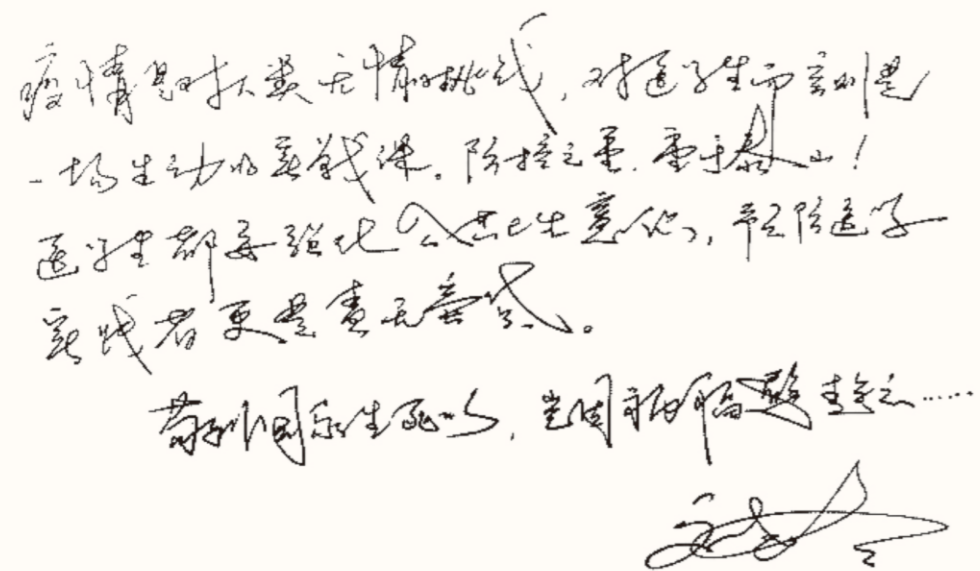 疫情是对人类无情的挑战，对医学生而言则是
一场生动的实战课。防控之重，重于泰山！
医学生都要强化公共卫生意识，预防医学
实践者更是责无旁贷。
苟利国家生死以，岂因祸福避趋之……